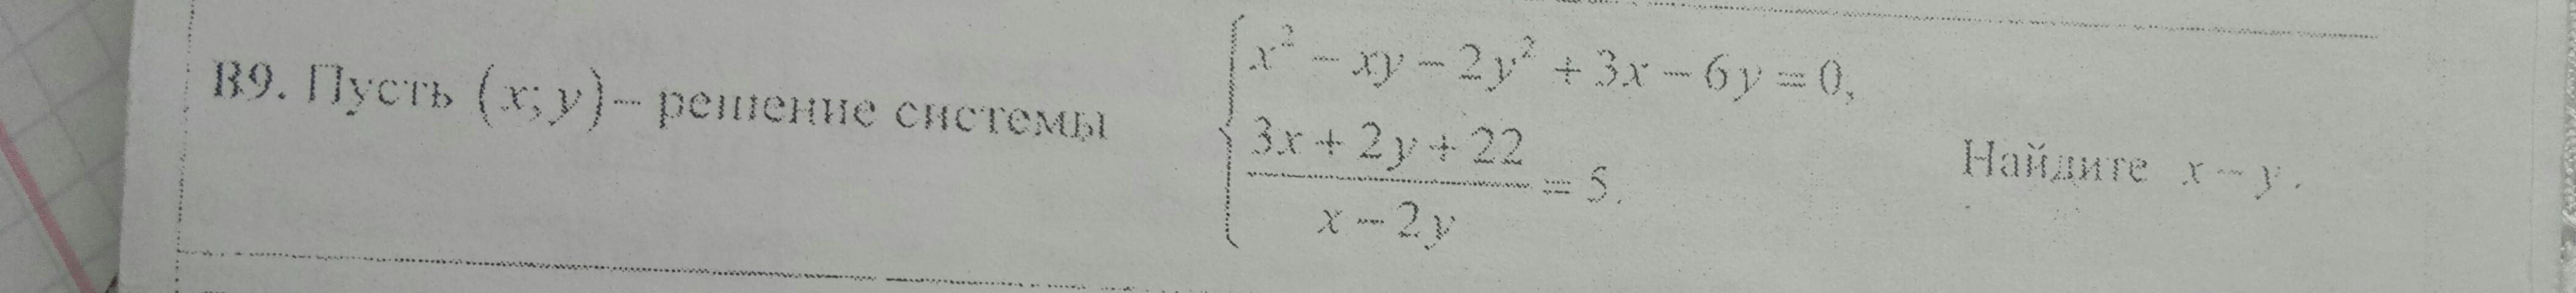 B9. Пусть (x; y) – решение системы { x² – xy – 2y² + 3x – 6y = 0, (3x + 2y + 22)/(x – 2y) = 5. Найдите x – y.